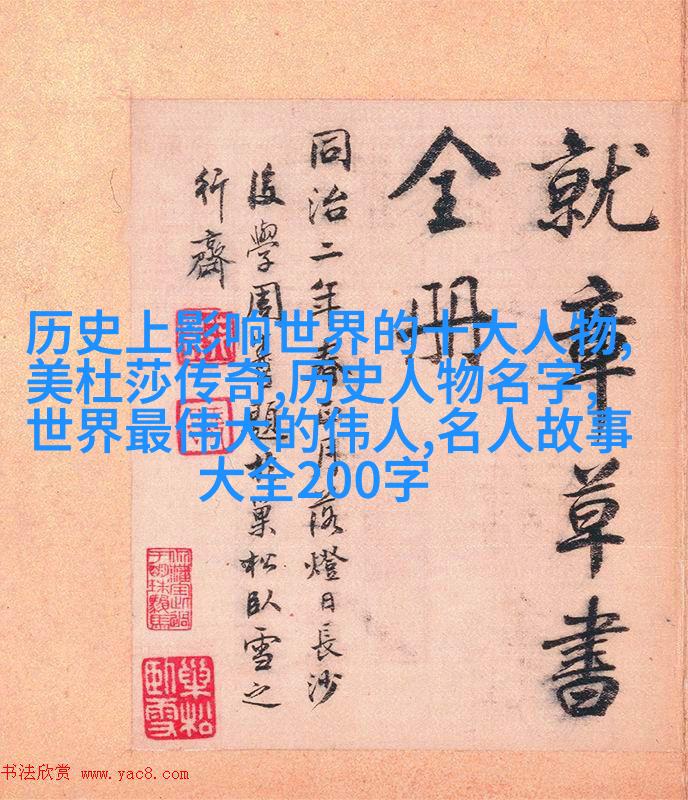 就章草書
全册
同治二年春正月落燈日長沙
後學周題於巢松臥雪之
行齋
历史上影响世界的十大人物,
美杜莎传奇,历史人物名字,
世界最伟大的伟人,名人故事
大全200字
巢松
臥雪
书法欣赏 www.yac8.com